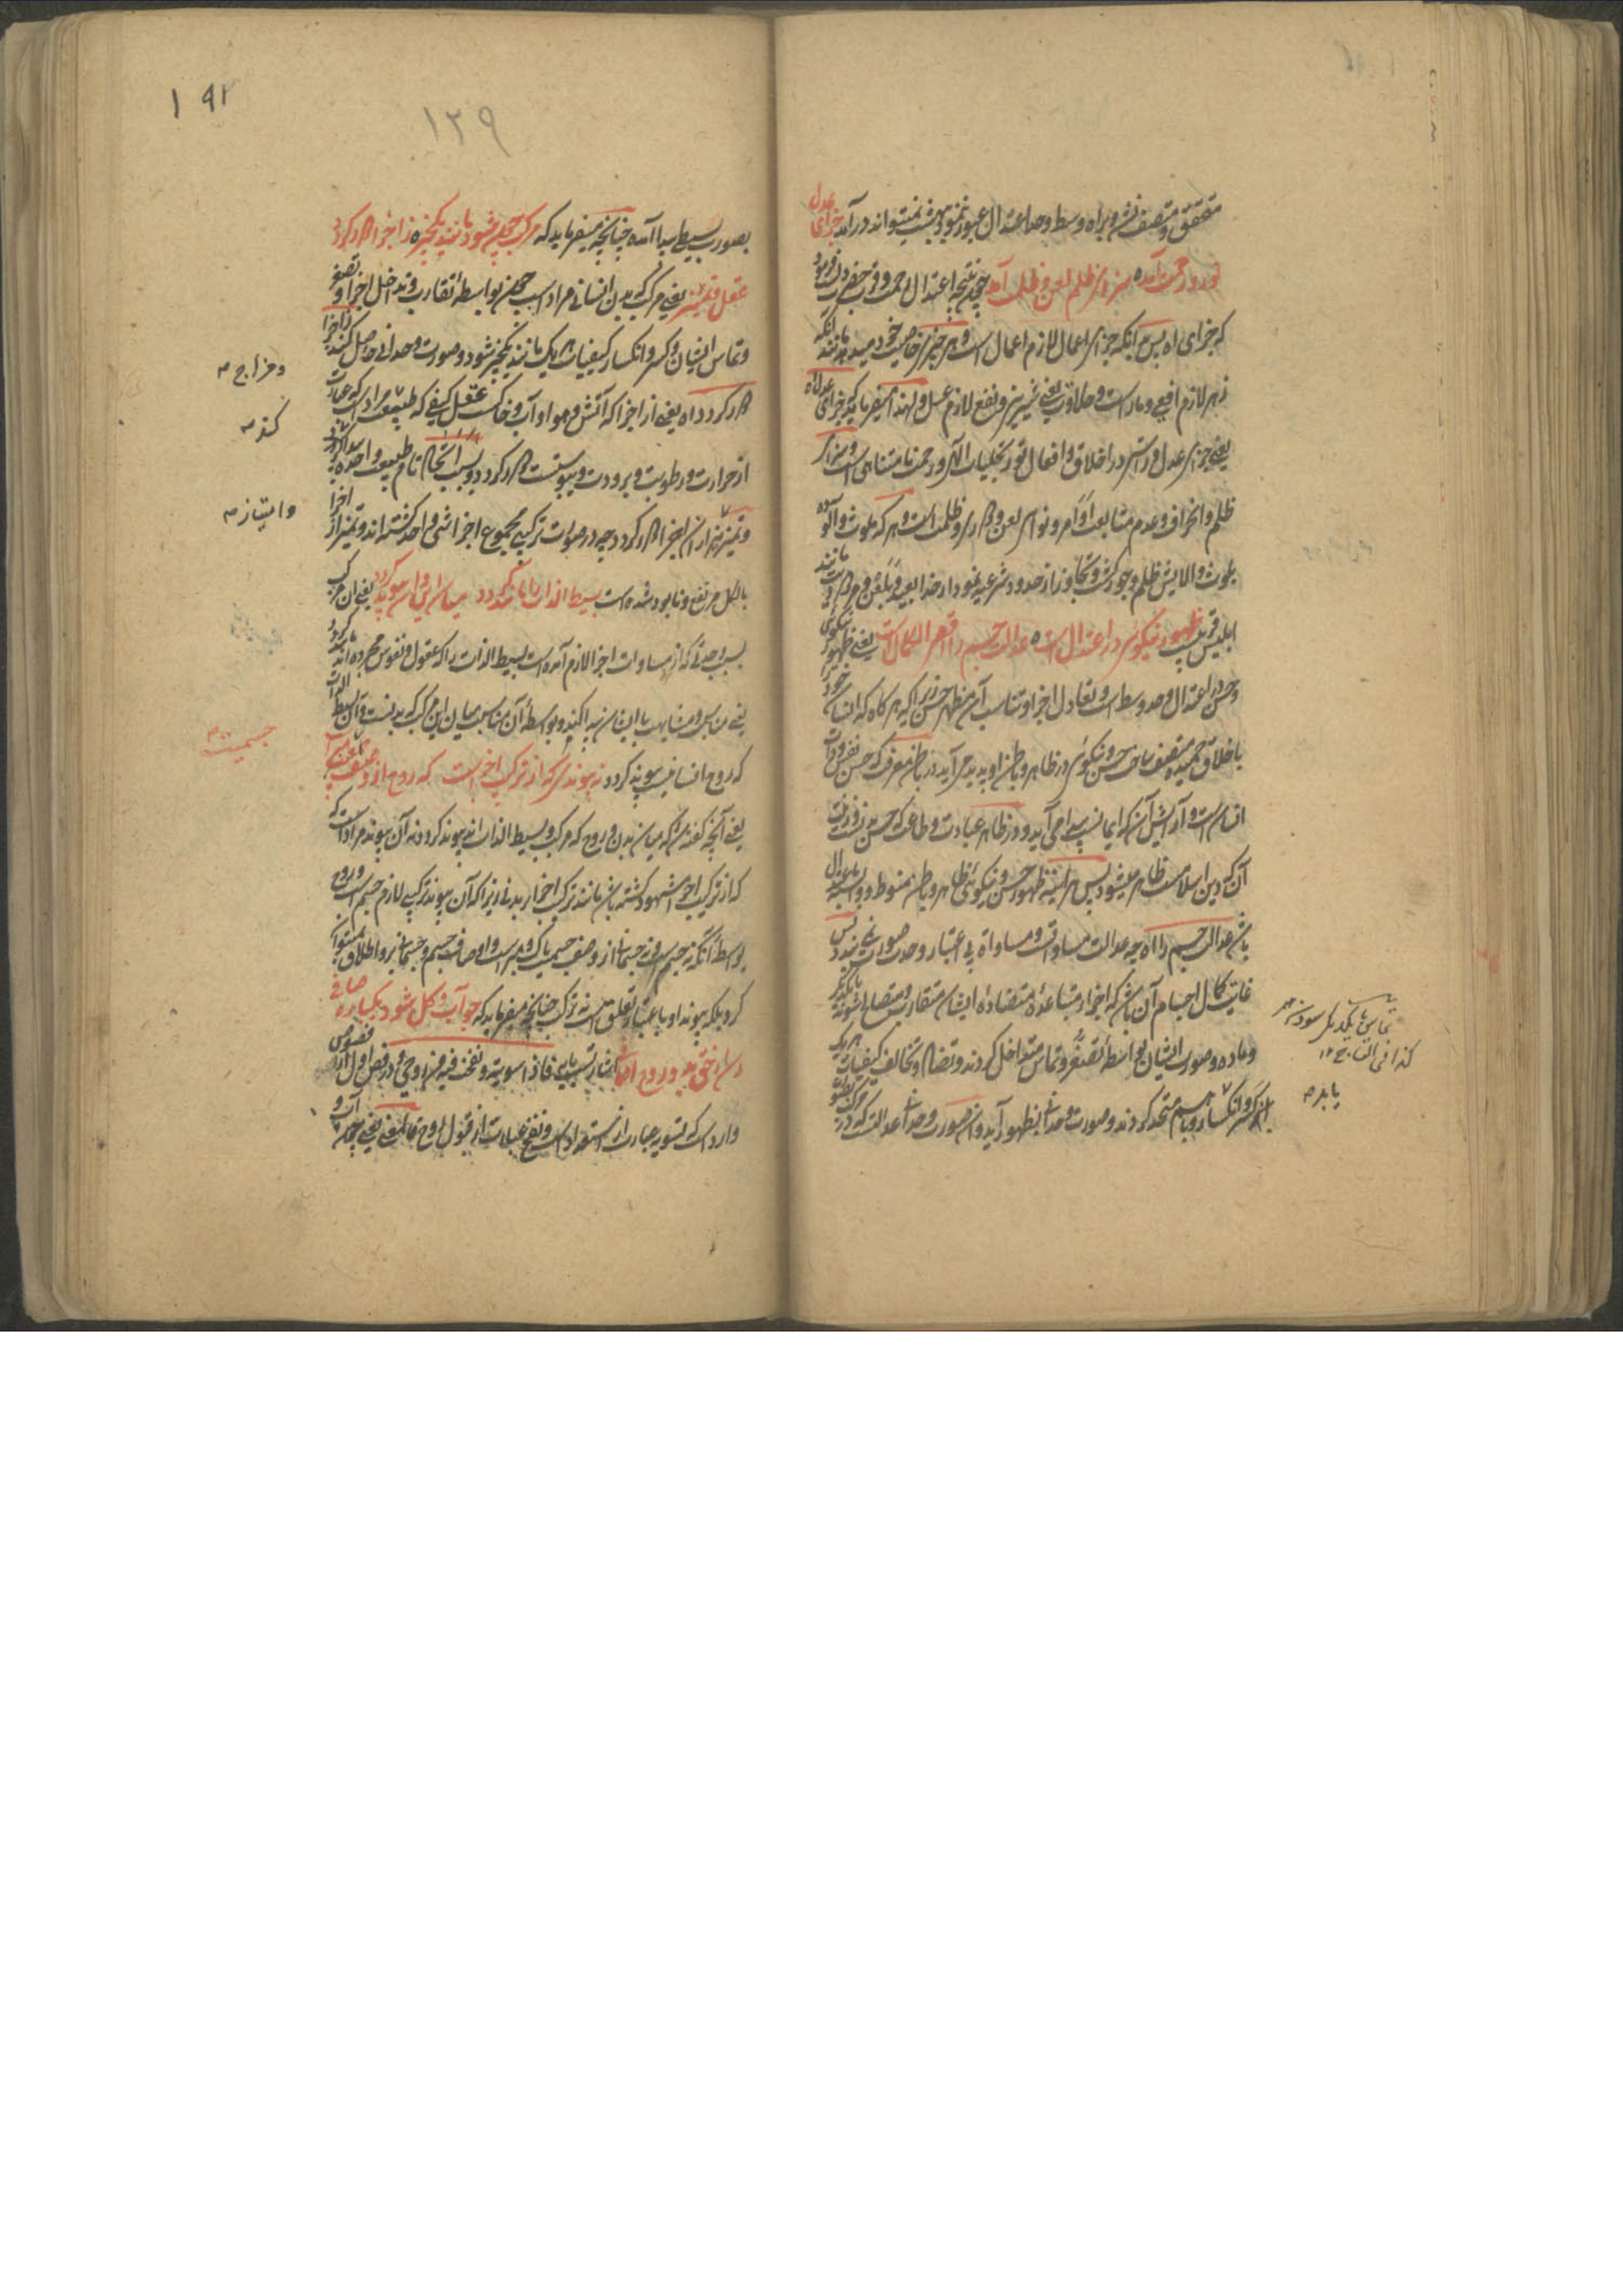 متحقق و متصف نشود و براه وسط و حد اعتدال عبور ننمود و بهشت نمیتواند درآمد جزای عدل
نور و رحمت آمده سزای ظلم لعن و ظلمت آمد چه نتیجه اعتدال رحمت و قرب حضرت
که جزای اه پس آنکه جزای اعمال لازم اعمال است و هر چیزی خاصیت خود میدهد مانند آنکه
زهر لازم افعی و مار است و حلاوت یعنی شیرینی و نفع لازم عسل و لهذا میفرماید که جزای عدل اه
یعنی جزای عدل و راستی در اخلاق و افعال نور تجلیات الهی و رحمت نامتناهی است و سزای
ظلم و انحراف و عدم متابعت اوامر و نواهی لعن و دوری و ظلمت است و هر که ملوث و آلوده
بلوث و آلایش ظلم و جور گشت و تجاوز از حدود شرعیه نمود از خدا بعید و ملعون و مردود مانند
ابلیس ظهور نیکوئی در اعتدال است ه عدالت جسم را اقصی الکمال است یعنی ظهور نیکوئی
و حسن در اعتدال و حد وسط است و تعادل اجزا و تناسب آن مظهر حسن زیرا که هرگاه که انسان
باخلاق حمیده متصف شد حسن و نیکوئی در ظاهر و باطن او پدید می‌آید در باطن معرفت که حسن
انسان است و آرایش آن که ایمانست پیدا می‌آید و در ظاهر عبادت و طاعت که حسن بدنست و زینت
آن که دین اسلامست ظاهر میشود پس هر آینه ظهور حسن و نیکوئی ظاهر و باطن منوط و وابسته باعتدال
باشد عدالت جسم را اه چه عدالت مساواتست و مساواة بی اعتبار وحدت صورت نبندد پس
غایت کمال اجسام آن باشد که اجزاء متباعده متضاده ایشان متقارب و متصالح شوند بایکدیگر
و ماده و صورت ایشان بواسطه تصغر و تماس متداخل گردند و تضاد و تخالف کیفیات هر یک
بکسر و انکسار باهم متحد گردند و صورت وحدانی بظهور آید و آن صورت وحدانی عدالت که در مرکب
تماس بایکدیگر سودن
کذا فی التاج ۱۲
یابد
۱۹۳
۱۲۹
بصورت بسیط پیدا آمده چنانچه میفرماید که مرکب چون شود مانند یکچیز ه ز اجزا دور گردد
عقل و تمییز یعنی مرکب که بدن انسانی مراد است چون بواسطه تقارب و تداخل اجزا و تصغر
و تماس ایشان و کسر و انکسار کیفیات هر یک مانند یکچیز شود و صورت وحدانی حاصل کند ز اجزا
دور گردد اه یعنی از اجزا که آتش و هوا و آب و خاکست عقل کیفی که طبیعت مراد است که عبارت
از حرارت و رطوبت و برودت و یبوست است دور گردد و بسبب استحکام تام طبیعت واحده پیدا گردد
و تمییز نیز از آن اجزا دور گردد چه در صورت ترکیبی مجموع اجزا شیء واحد گشته‌اند و تمییز از اجزا
بالکل مرتفع و نابود شده است بسیط الذات را مانند گردد میان این و آن پیوند گردد یعنی آن مرکب
بسبب وحدتی که از مساوات اجزا لازم آمده است بسیط الذات را که عقول و نفوس مجرده‌اند مانند گردد
یعنی مناسبت و مشابهت با ایشان پیدا کند و بواسطه آن مناسبت میان این مرکب که بدنست و آن بسیط الذات
که روح انسانیست پیوند گردد نه پیوندی که از ترکیب اجزاست که روح از وصف جسمیت مبراست
یعنی آنچه گفته شد که میان بدن و روح که مرکب و بسیط الذات‌اند پیوند گردد نه آن پیوند مراد است که
که از ترکیب اجزا مشهود گشته باشد مانند ترکیب اجزاء بدنی زیرا که آن پیوند ترکیبی لازم جسم است و روح
بواسطه آنکه نه جسم است و نه جسمانی از وصف جسمیت پاک و مبراست و اوصاف جسم و جسمانی برو اطلاق نمیتوان
کرد بلکه پیوند او باعتبار تعلق است نه ترکیب چنانچه میفرماید که چو آب و گل شود یکباره صافی
رسد از حق بدو روح اضافی اشارتست بآیه فاذا سویته و نفخت فیه من روحی و در فص اول از فصوص
وارد است که تسویه عبارت از استعداد است و نفخ عبارت از قبول روح
و مزاج
کند
و امتیاز
جسمیت